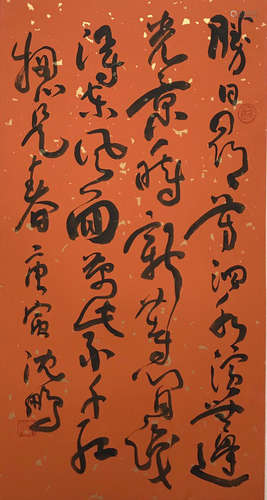 勝日尋芳泗水濱無邊
光景一時新等閒識
得東風面萬紫千紅
總是春 庚寅沈鵬